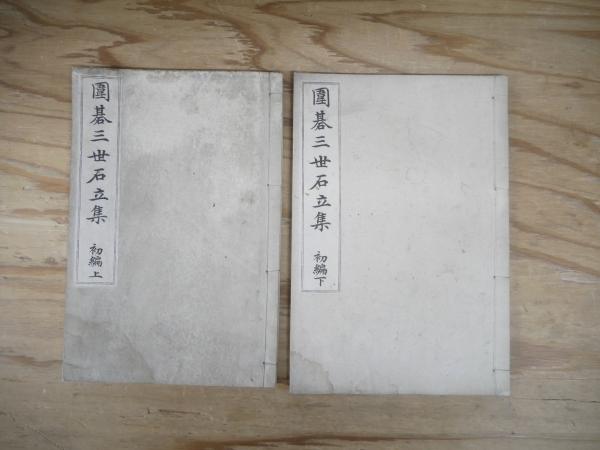 圍碁三世石立集
初編上
圍碁三世石立集
初編下